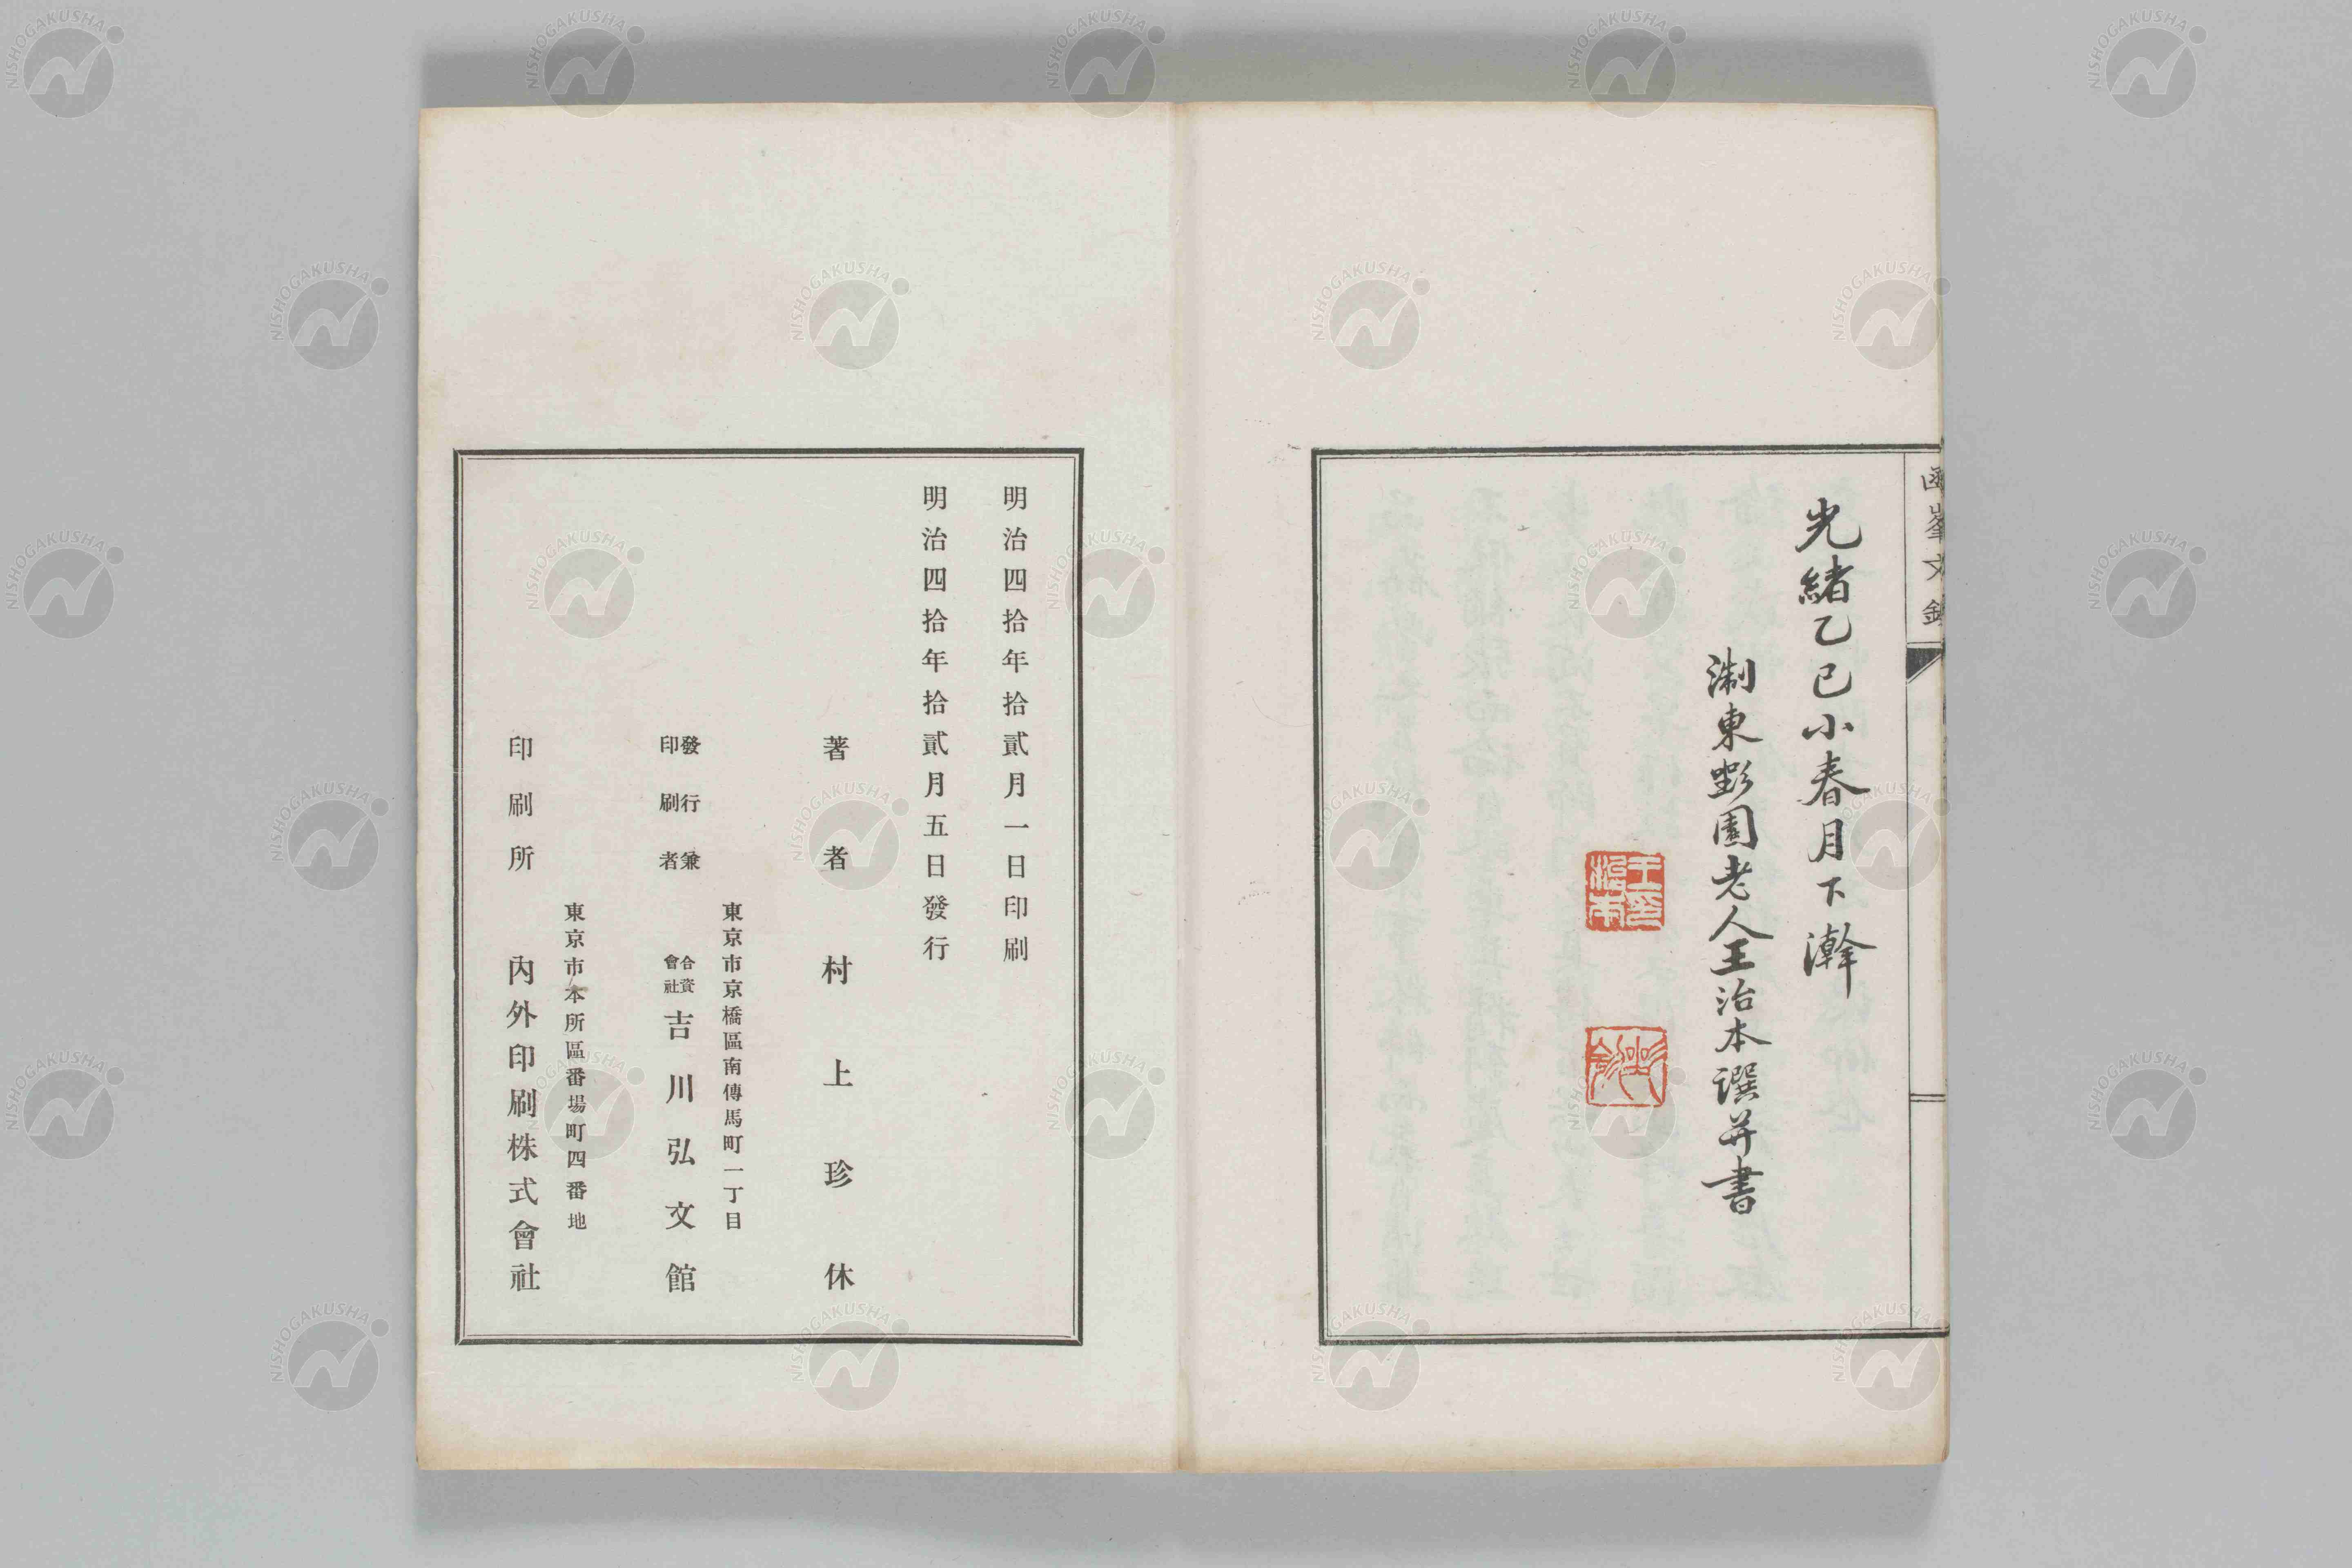 函峯文鈔
光緒乙巳小春月下澣
淛東黟園老人王治本譔并書
王印治本
明治四拾年拾貳月一日印刷
明治四拾年拾貳月五日發行
著者 村上珍休
東京市京橋區南傳馬町一丁目
發行兼印刷者 合資會社 吉川弘文館
東京市本所區番場町四番地
印刷所 內外印刷株式會社
NISHOGAKUSHA